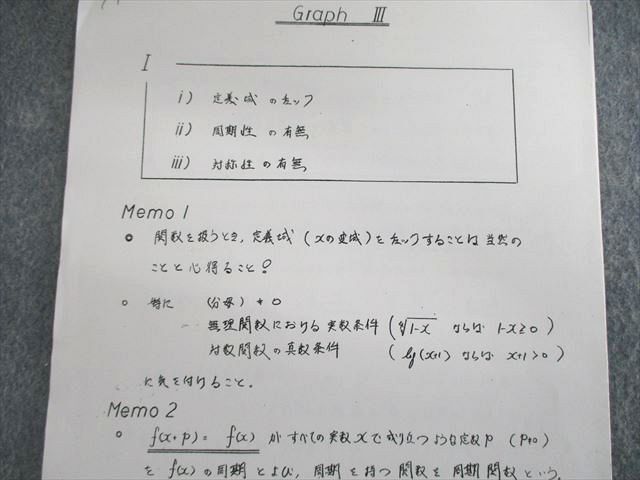 Graph Ⅲ
I
i) 定義域のチェック
ii) 周期性の有無
iii) 対称性の有無
Memo 1
○ 関数を扱うとき, 定義域 (xの変域) をチェックすることは当然の
ことと心得ること!
○ 特に (分母) ≠ 0
無理関数における実数条件 (√1-x ならば 1-x≥0)
対数関数の真数条件 (log(x+1) ならば x+1>0)
に気を付けること.
Memo 2
○ f(x+p) = f(x) がすべての実数xで成り立つような定数p (p≠0)
を f(x) の周期とよび, 周期を持つ関数を周期関数という.